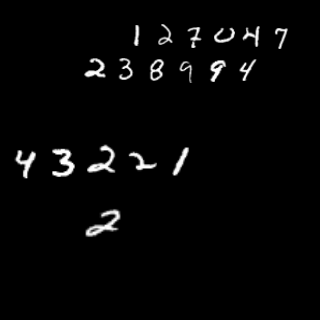 127047
238994
43221
2